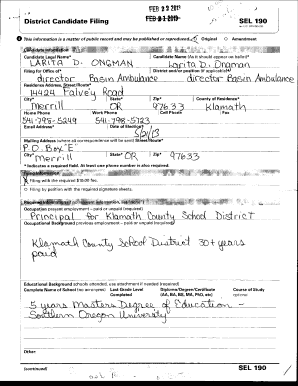 FEB 22 2011
FEB 21 2011
District Candidate Filing
SEL 190
This information is a matter of public record and may be published or reproduced.
Original Amendment
Candidate Information
Candidate Legal Name* Candidate Name (As it should appear on ballot)*
LARITA D. ONGMAN Larita D. Ongman
Filing for Office of* District and/or position (if applicable)*
director Basin Ambulance director Basin Ambulance
Residence Address, Street/Route*
14424 Falvey Road
City* State* Zip* County of Residence*
Merrill OR 97633 Klamath
Home Phone Work Phone Cell Phone Fax
541-798-5249 541-798-5723
Email Address Date of Election*
Mailing Address (where all correspondence will be sent) Street/Route*
P.O. Box "E"
City* State* Zip*
Merrill OR 97633
*Indicates a required field. At least one phone number is also required.
Filing Information
Filing with the required $10.00 fee.
Filing by petition with the required signature sheets.
Occupation (present employment – paid or unpaid) (required)
Principal for Klamath County School District
Occupational Background (previous employment – paid or unpaid) (required)
Klamath County School District 30+ years
paid
Educational Background (schools attended, use attachment if needed) (required)
Complete Name of School (no acronyms) Last Grade Level Diploma/Degree/Certificate Course of Study
Completed (AA, BA, BS, MA, PhD, etc) optional
5 years Masters Degree of Education –
Southern Oregon University
Other
(continued) SEL 190